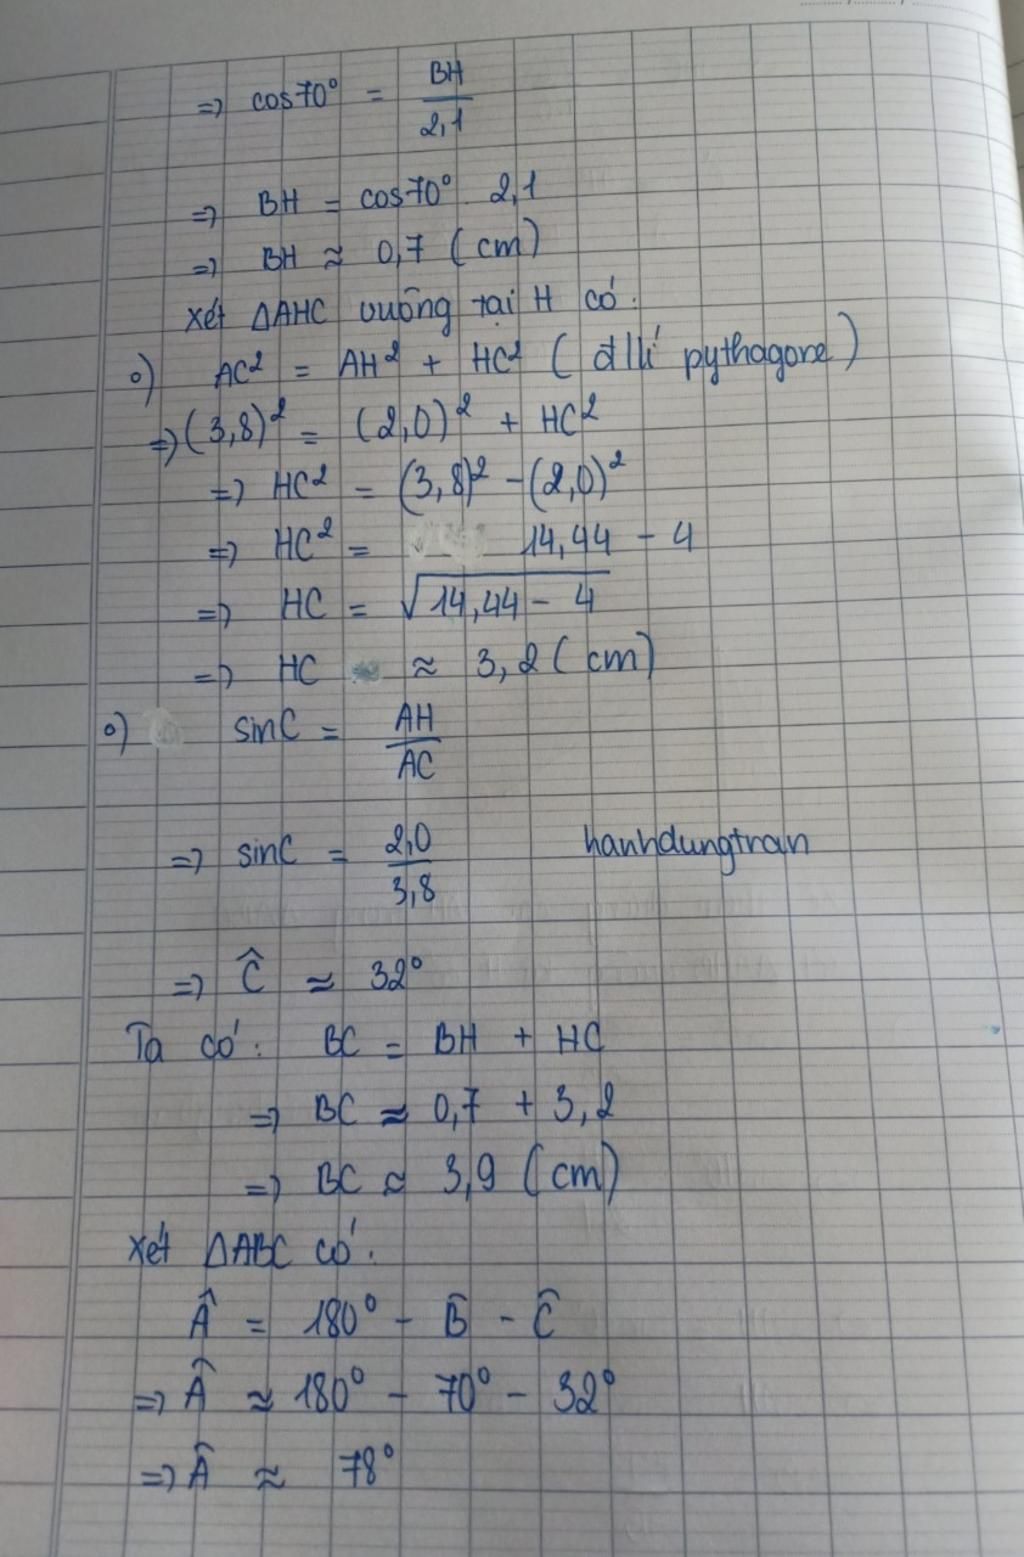 => cos70° = BH/2,1
=> BH = cos70° . 2,1
=> BH ≈ 0,7 (cm)
Xét ΔAHC vuông tại H có:
o) AC² = AH² + HC² (đ lí pythagore)
=> (3,8)² = (2,0)² + HC²
=> HC² = (3,8)² - (2,0)²
=> HC² = 14,44 - 4
=> HC = √14,44 - 4
=> HC ≈ 3,2 (cm)
o) sinC = AH/AC
=> sinC = 2,0/3,8
hanhdungtran
=> Ĉ ≈ 32°
Ta có: BC = BH + HC
=> BC ≈ 0,7 + 3,2
=> BC ≈ 3,9 (cm)
Xét ΔABC có:
Â = 180° - B̂ - Ĉ
=> Â ≈ 180° - 70° - 32°
=> Â ≈ 78°